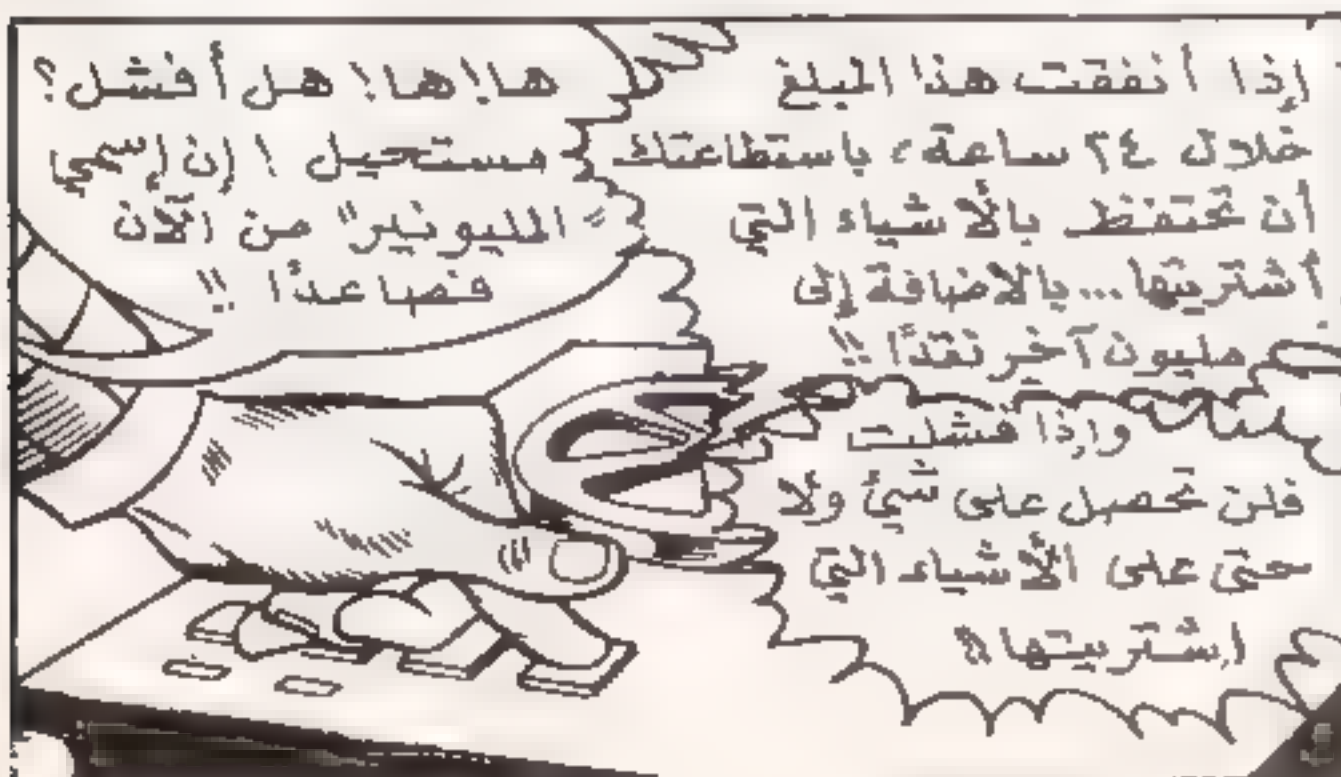 إذا أنفقت هذا المبلغ
خلال ٢٤ ساعة، باستطاعتك
أن تحتفظ بالأشياء التي
أشتريتها... بالاضافة إلى
مليون آخر نقدًا !!
وإذا فشلت
فلن تحصل على شئ ولا
حتى على الأشياء التي
اشتريتها !!
ها! ها! هل أفشل؟
مستحيل ! إن إسمي
"المليونير" من الآن
فصاعدًا !!